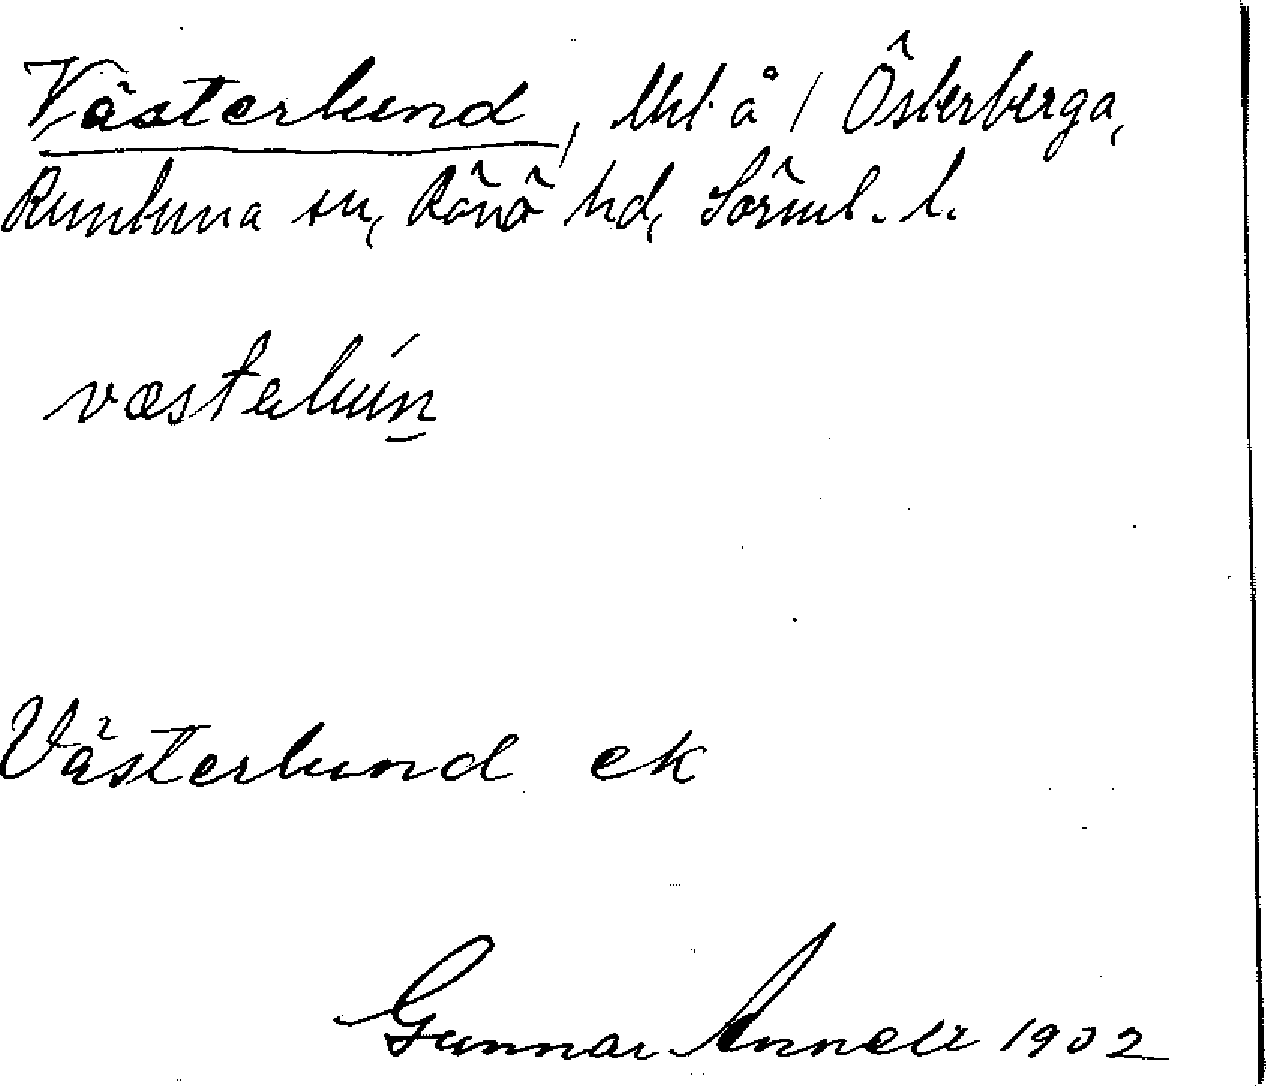 Västerlund, Utl. å / Österberga,
Runtuna sn, Rönö hd, Sörml. l.
væstelún
Västerlund ek
Gunnar Annell 1902